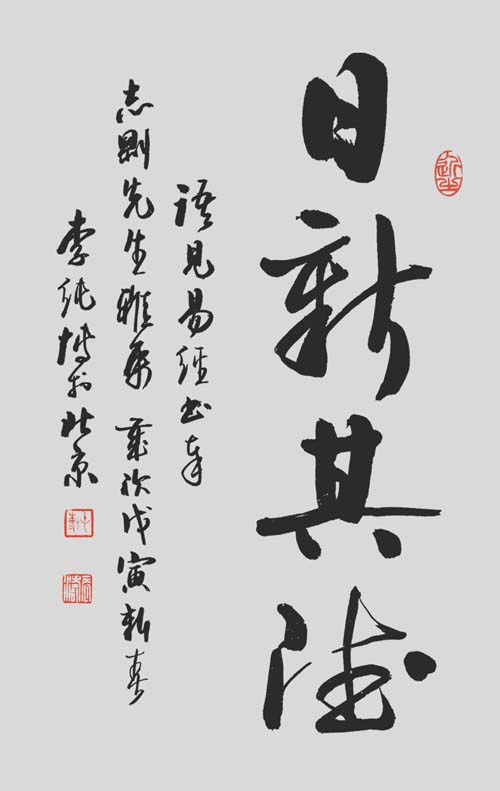 日新其德
语见易经书奉
志刚先生雅属 岁次戊寅新春
李纯博于北京